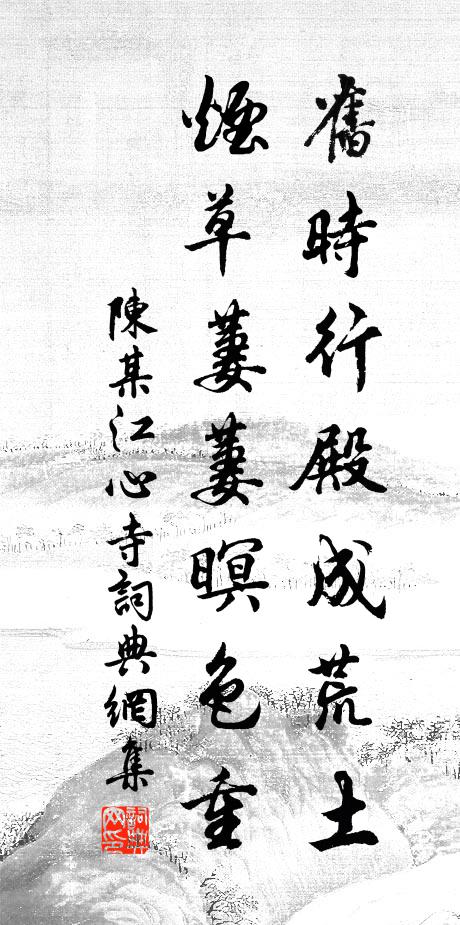 舊時行殿成荒土
煙草萋萋暝色重
陳某江心寺詞典網集
詞典网印